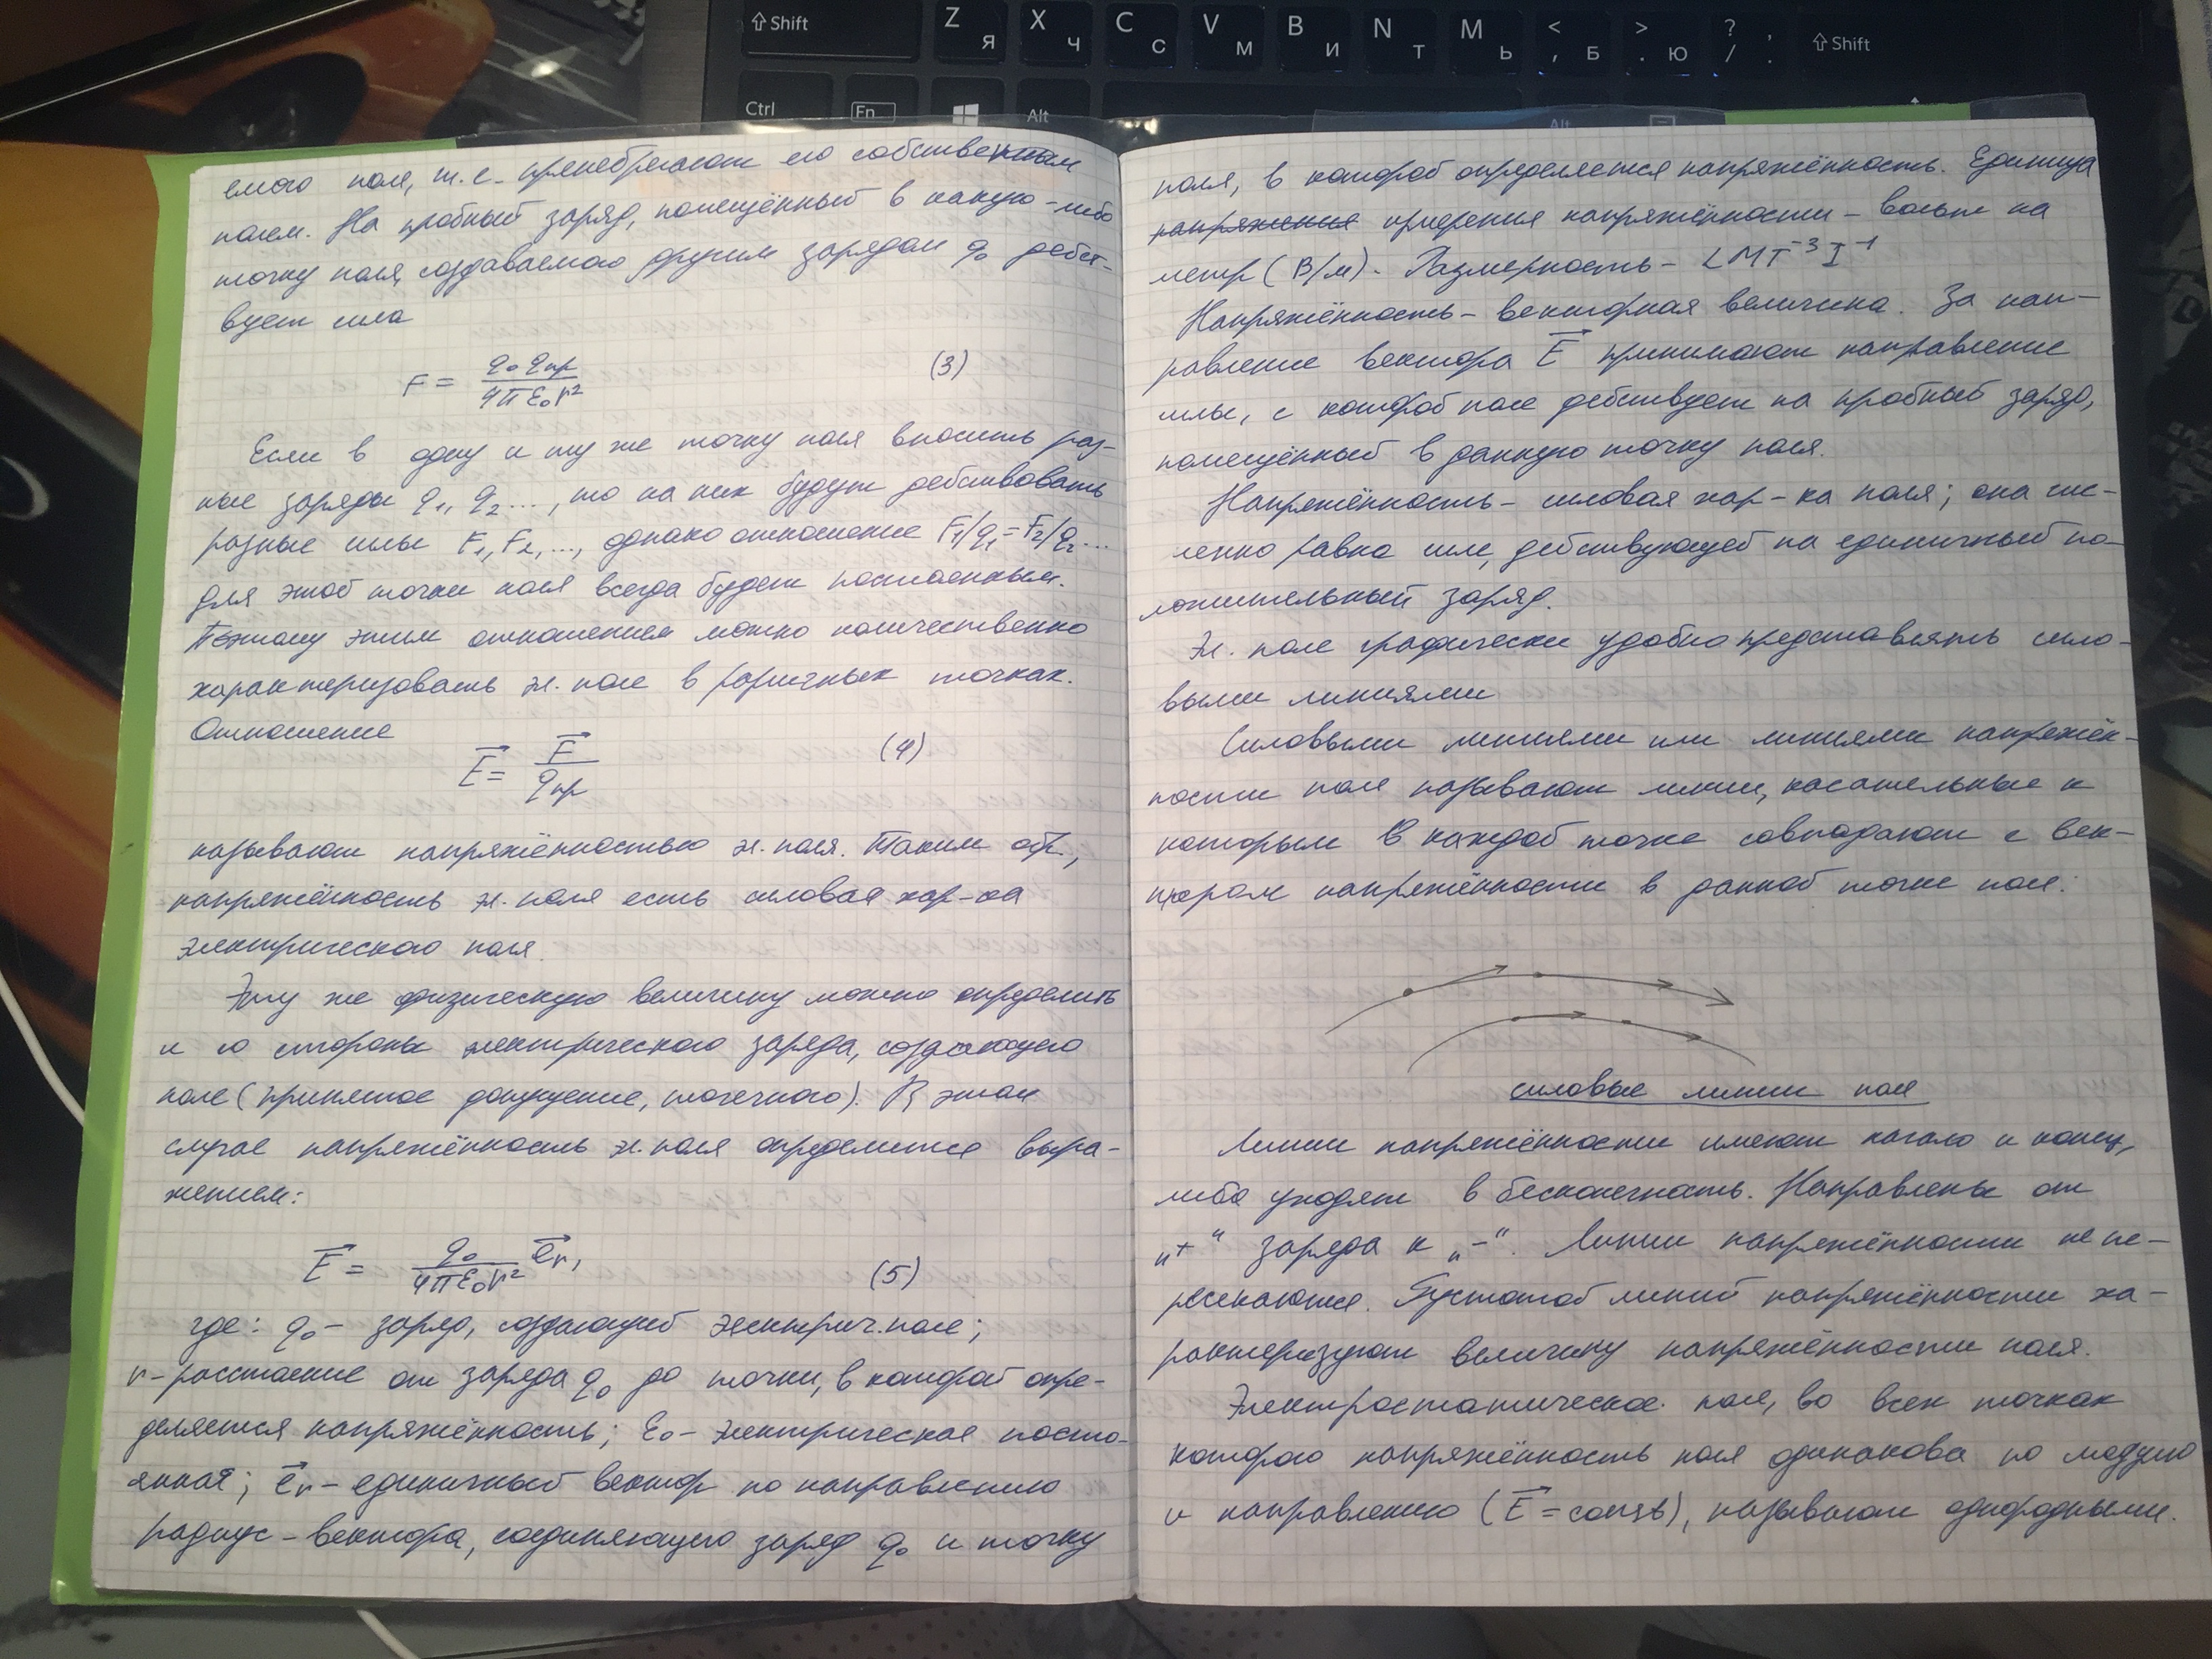 Shift Z Я X Ч C С V М B И N Т M Ь < , Б > . Ю ? / , . Shift
Ctrl Fn Alt Alt
емого поля, т.е. пренебрегают его собственным
полем. На пробный заряд, помещённый в какую-либо
точку поля, создаваемого другим зарядом q₀ дейст-
вует сила
F = q₀ qпр / 4πε₀r² (3)
Если в одну и ту же точку поля вносить раз-
ные заряды q₁, q₂ ..., то на них будут действовать
разные силы F₁, F₂, ..., однако отношение F₁/q₁ = F₂/q₂ ...
для этой точки поля всегда будет постоянным.
Поэтому этим отношением можно количественно
характеризовать эл. поле в различных точках.
Отношение
E⃗ = F⃗ / qпр (4)
называют напряжённостью эл. поля. Таким обр.,
напряжённость эл. поля есть силовая хар-ка
электрического поля.
Эту же физическую величину можно определить
и со стороны электрического заряда, создающего
поле (принятое допущение, точечного). В этом
случае напряжённость эл. поля определится выра-
жением:
E⃗ = q₀ / 4πε₀r² e⃗r, (5)
где: q₀ - заряд, создающий электрич. поле;
r - расстояние от заряда q₀ до точки, в которой опре-
деляется напряжённость; ε₀ - электрическая посто-
янная; e⃗r - единичный вектор по направлению
радиус-вектора, соединяющего заряд q₀ и точку
поля, в которой определяется напряжённость. Единица
напряжения измерения напряжённости - вольт на
метр (В/м). Размерность - LMT⁻³I⁻¹
Напряжённость - векторная величина. За нап-
равление вектора E⃗ принимают направление
силы, с которой поле действует на пробный заряд,
помещённый в данную точку поля.
Напряжённость - силовая хар-ка поля; она чис-
ленно равна силе, действующей на единичный по-
ложительный заряд.
Эл. поле графически удобно представлять сило-
выми линиями
Силовыми линиями или линиями напряжён-
ности поля называют линии, касательные к
которым в каждой точке совпадают с век-
тором напряжённости в данной точке поля:
силовые линии поля
Линии напряжённости имеют начало и конец,
либо уходят в бесконечность. Направлены от
„+“ заряда к „-“. Линии напряжённости не пе-
ресекаются. Густотой линий напряжённости ха-
рактеризуют величину напряжённости поля.
Электростатическое поле, во всех точках
которого напряжённость поля одинакова по модулю
и направлению (E⃗ = const), называют однородным.